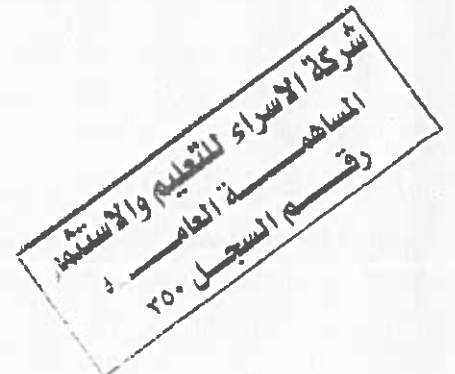 شركة الاسراء للتعليم والاستثم
المساهمة العامـ
رقم السجل ٣٥٠